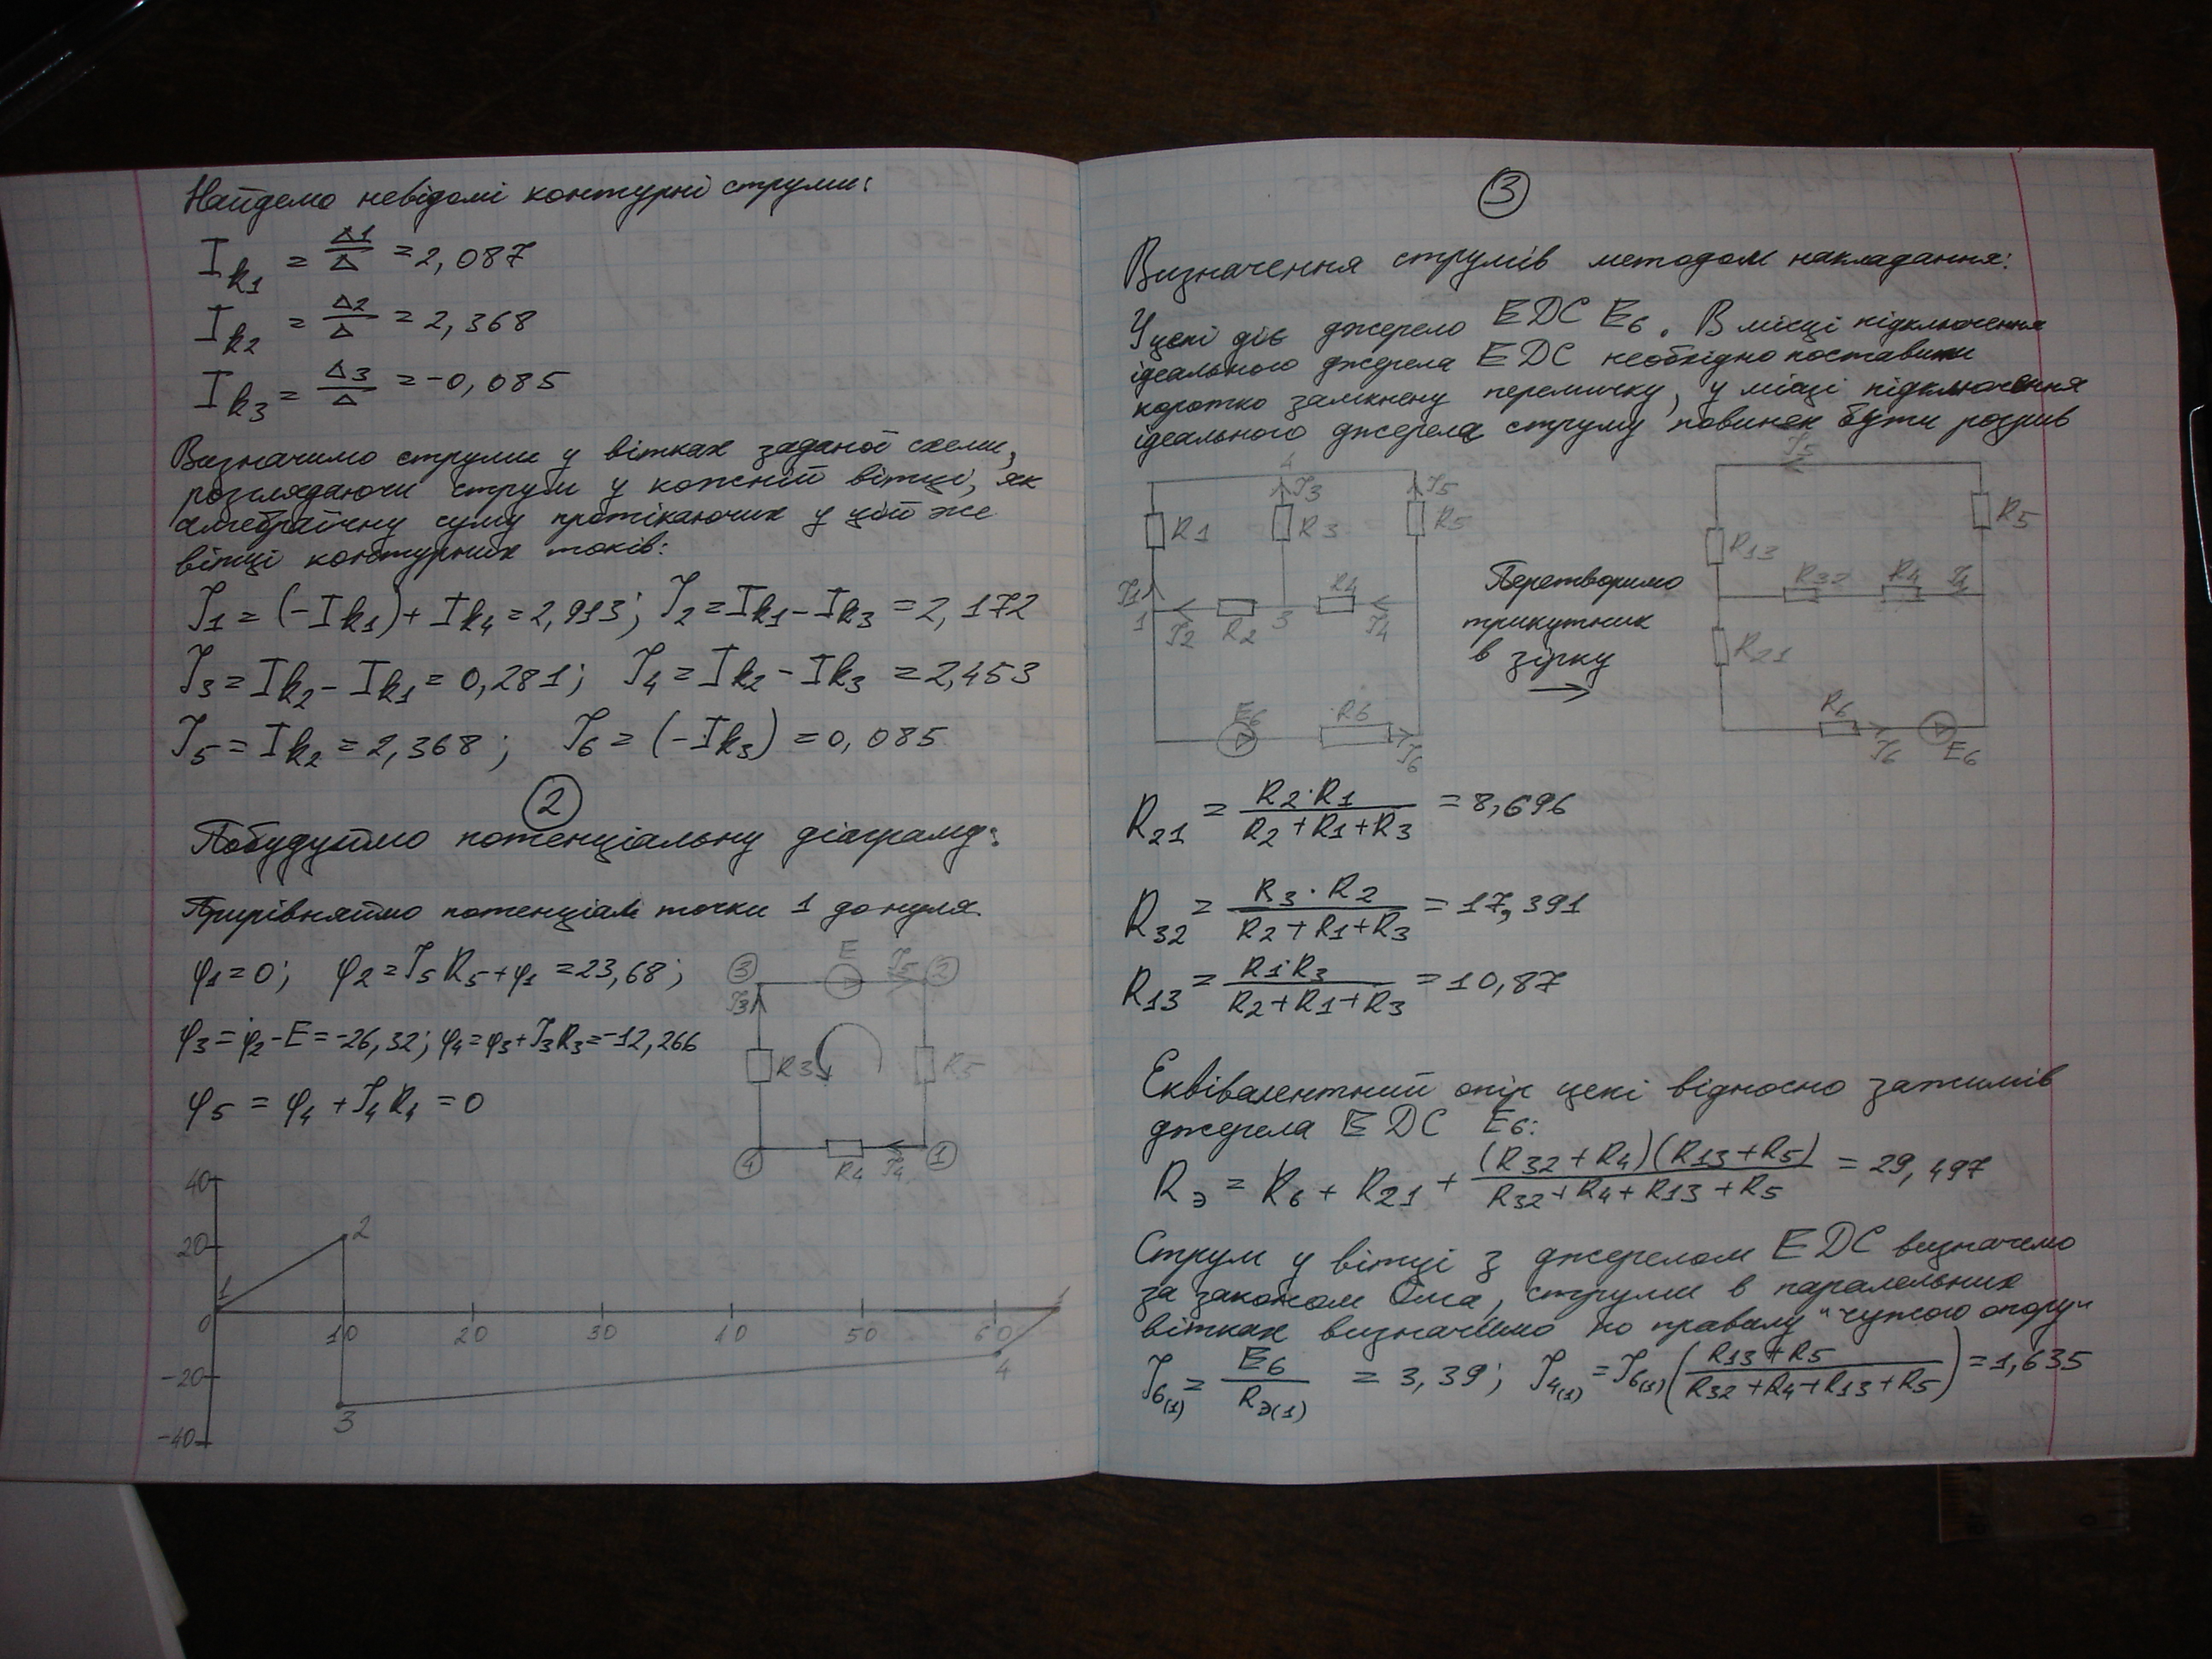 Найдемо невідомі контурні струми:
I k1 = Δ1/Δ = 2,087
I k2 = Δ2/Δ = 2,368
I k3 = Δ3/Δ = -0,085
Визначимо струми у вітках заданої схеми,
розглядаючи струм у кожній вітці, як
алгебраїчну суму протікаючих у цій же
вітці контурних токів:
I1 = (-Ik1) + Ik4 = 2,913; I2 = Ik1 - Ik3 = 2,172
I3 = Ik2 - Ik1 = 0,281; I4 = Ik2 - Ik3 = 2,453
I5 = Ik2 = 2,368; I6 = (-Ik3) = 0,085
2
Побудуймо потенціальну діаграму:
Прирівняймо потенціал точки 1 до нуля.
φ1 = 0; φ2 = I5R5 + φ1 = 23,68;
φ3 = φ2 - E = -26,32; φ4 = φ3 + I3R3 = -12,266
φ5 = φ4 + I4R4 = 0
3 E I5 2
I3
R3 R5
4 R4 I4 1
40
20 2
1 1
0 10 20 30 40 50 60
-20 4
3
-40
3
Визначення струмів методом накладання:
У цепі діє джерело EDC E6. В місці підключення
ідеального джерела EDC необхідно поставити
коротко замкнену перемичку, у місці підключення
ідеального джерела струму повинен бути розрив
4 I3 I5
R1 R3 R5
I1 R4
1 I2 R2 3 I4
E6 R6
I6
Перетворимо
трикутник
в зірку
I5
R5
R13
R32 R4 I4
R21
R6
I6 E6
R21 = R2·R1 / (R2+R1+R3) = 8,696
R32 = R3·R2 / (R2+R1+R3) = 17,391
R13 = R1·R3 / (R2+R1+R3) = 10,87
Еквівалентний опір цепі відносно зажимів
джерела EDC E6:
Rэ = R6 + R21 + (R32+R4)(R13+R5) / (R32+R4+R13+R5) = 29,497
Струм у вітці з джерелом EDC визначемо
за законом Ома, струми в паралельних
вітках визначимо по правилу "чужого опору"
I6(1) = E6 / Rэ(1) = 3,39; I4(1) = I6(1) (R13+R5 / R32+R4+R13+R5) = 1,635